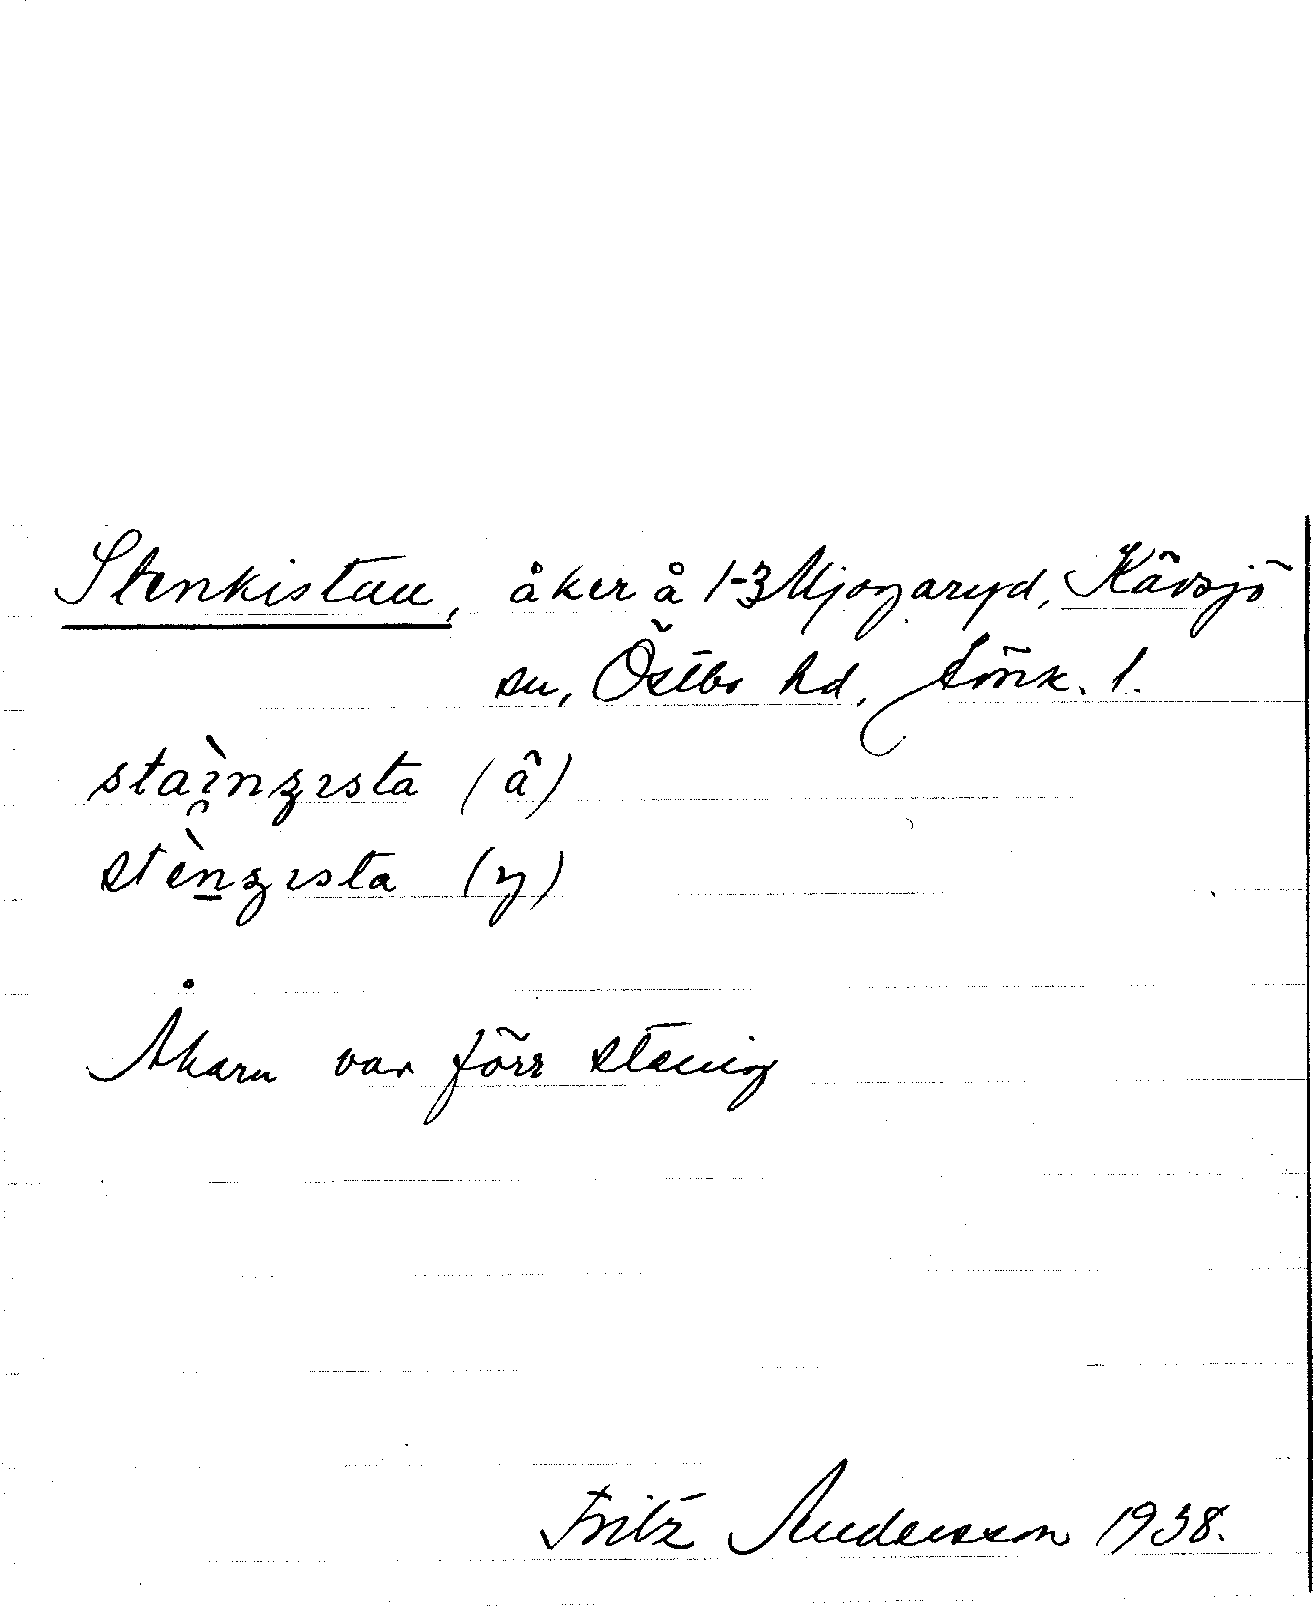 Stenkistan, åker å 1-3 Mjogaryd, Kävsjö
sn, Östbo hd, Jönk. l.
staìnʒısta (ä)
stènʒısta (y)
Åkern var förr stenig
Fritz Andersson 1938.